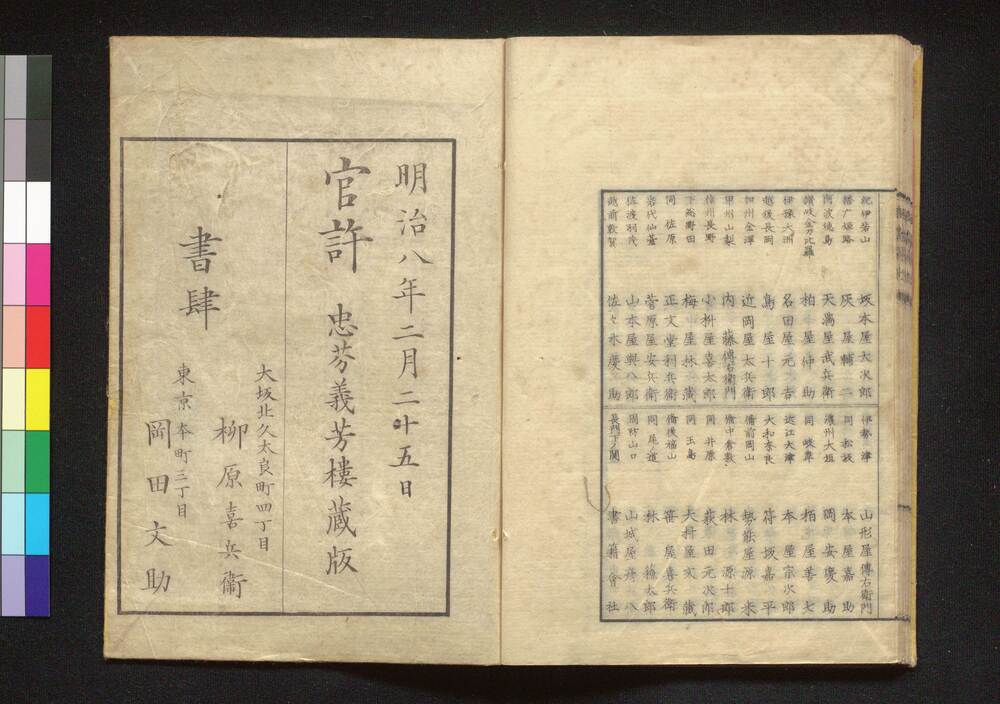 紀伊若山　坂本屋大次郎
播广姫路　灰屋輔二
阿波徳島　天満屋武兵衛
讃岐金刀比羅　柏屋仲助
伊豫大洲　名田屋元吉
越後長岡　鳥屋十郎
加州金澤　近岡屋太兵衛
甲州山梨　内藤傳右衛門
信州長野　小枡屋喜太郎
下高野田　梅山屋林蔵
同佐原　正文堂利兵衛
岩代仙臺　菅原屋安兵衛
佐渡羽茂　山本屋與八郎
越前敦賀　佐々木慶助
伊勢津　山形屋傳右衛門
同松坂　本屋嘉助
濃州大垣　岡安慶助
同岐阜　栢屋善七
近江大津　本屋宗次郎
大和奈良　符坂嘉平
備前岡山　勢能屋源米
備中倉敷　林源十郎
同井原　荻田元次郎
同玉島　大枡屋文蔵
備後福山　笛屋喜兵衛
同尾ノ道　林藤太郎
周防山口　山城屋彦八
長門下ノ関　書籍會社
明治八年二月二十五日
官許　忠芬義芳樓蔵版
大坂北久太良町四丁目
柳原喜兵衛
書肆
東京本町三丁目
岡田文助